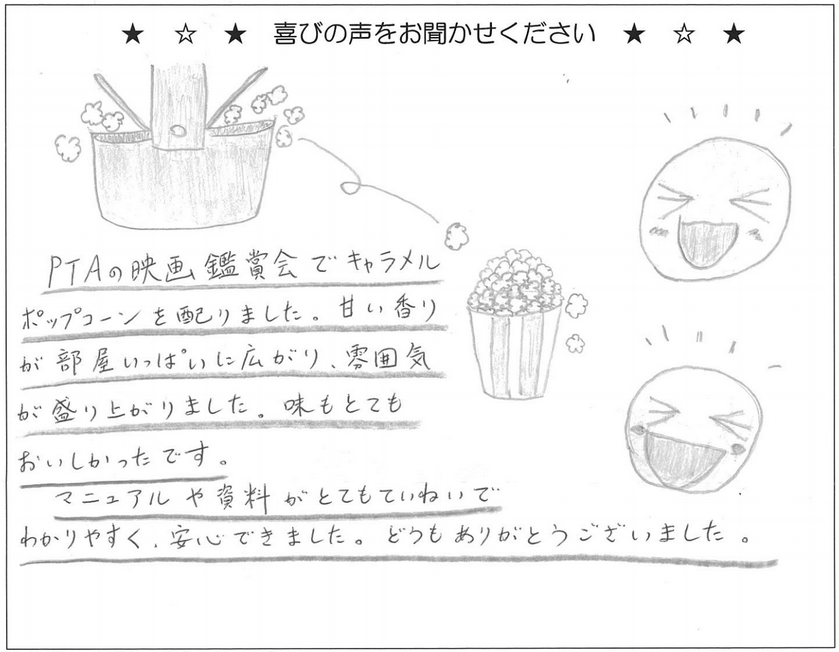 ★ ☆ ★ 喜びの声をお聞かせください ★ ☆ ★
PTAの映画鑑賞会でキャラメル
ポップコーンを配りました。甘い香り
が部屋いっぱいに広がり、雰囲気
が盛り上がりました。味もとても
おいしかったです。
マニュアルや資料がとてもていねいで
わかりやすく、安心できました。どうもありがとうございました。